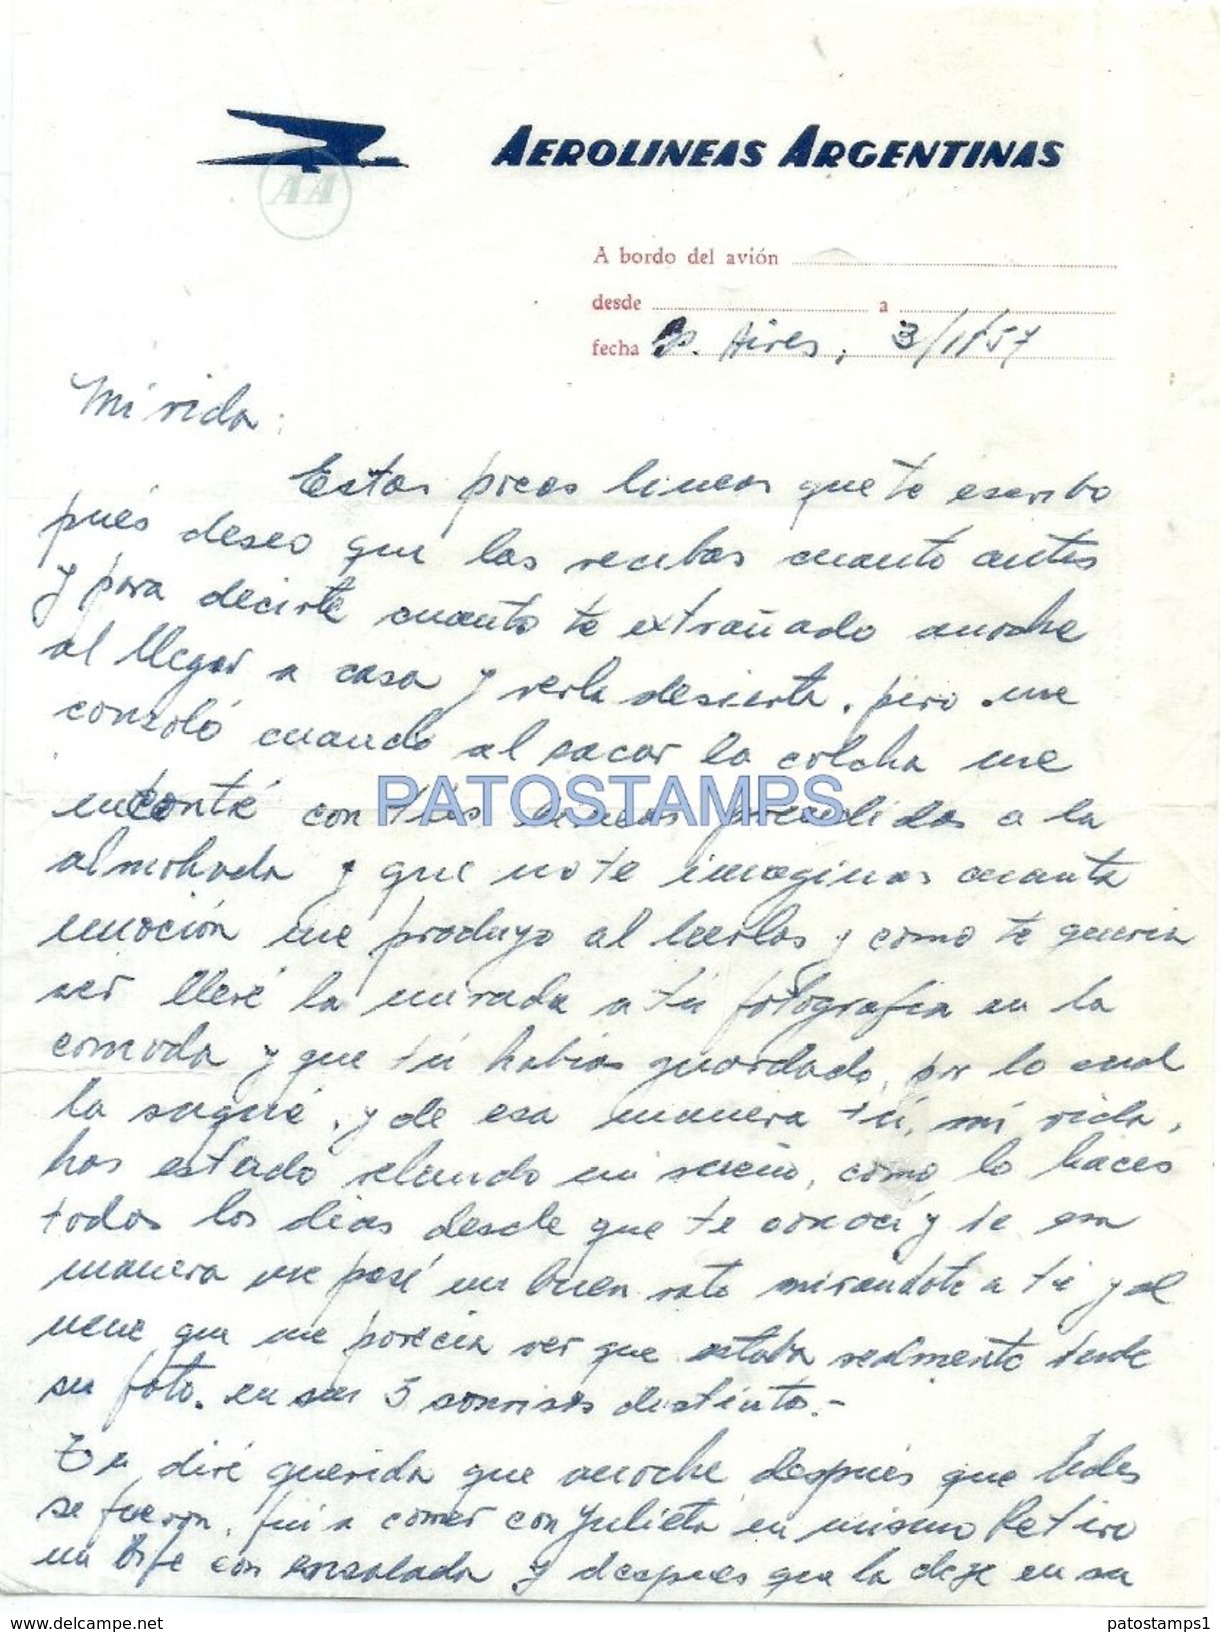 AEROLINEAS ARGENTINAS
AA
A bordo del avión
desde a
fecha Bs. Aires, 3/11/57
Mi vida:
Estas pocas lineas que te escribo
pués deseo que las recibas cuanto antes
y para decirte cuanto te extrañado anoche
al llegar a casa y verla desierta. pero me
consoló cuando al sacar la colcha me
encontré con tus lineas prendidas a la
PATOSTAMPS
almohada y que no te imaginas cuanta
emoción me produjo al leerlas y como te queria
ver llevé la mirada a tú fotografia en la
comoda y que tú habias guardado, por lo cual
la saqué, y de esa manera tú, mi vida,
has estado velando mi sueño, como lo haces
todos los dias desde que te conocí y de esa
manera me pasé un buen rato mirandote a ti y al
nene que me parecia ver que estaba realmente
su foto. en sus 3 sonrisas destintas.-
Te diré querida que anoche después que Udes
se fueron, fuí a comer con Julieta en mismo Retiro
un bife con ensalada y despues que la deje en su
www.delcampe.net
patostamps1